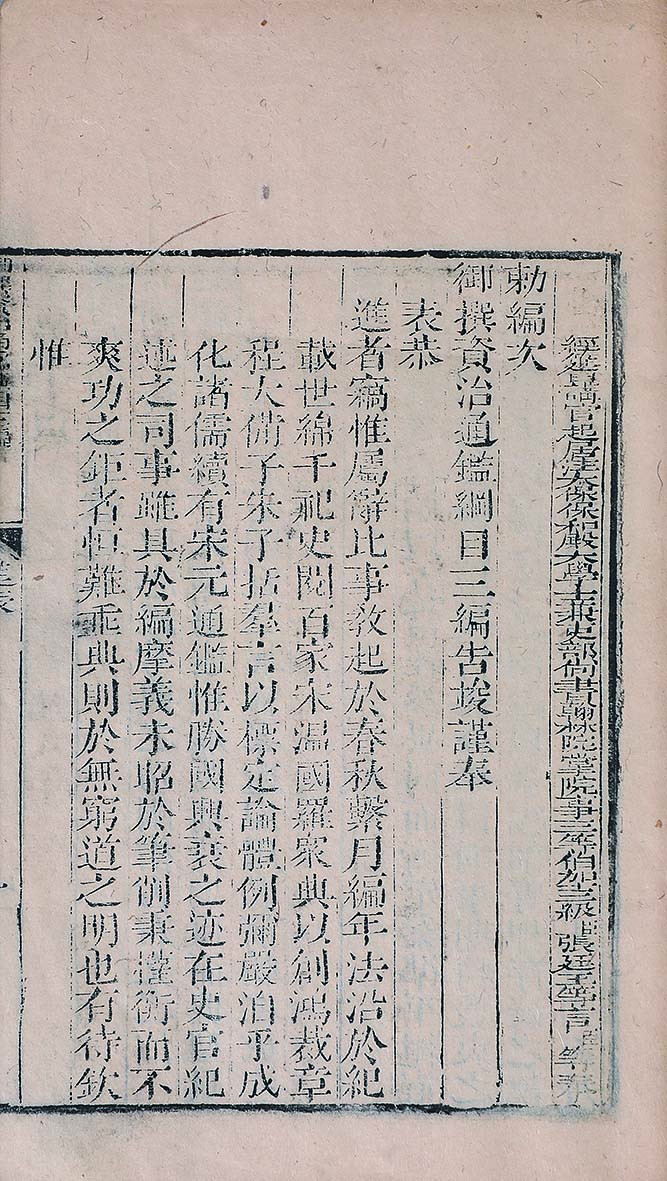 經筵日講官起居注太保保和殿大學士兼吏部尚書翰林院掌院事三等伯加三級臣張廷玉等言臣等奉
勅編次
御撰資治通鑑綱目三編告竣謹奉
表恭
進者竊惟屬辭比事敎起於春秋繫月編年法沿於紀
載世綿千祀史閱百家宋溫國羅眾典以創鴻裁章
程大備子朱子括羣言以標定論體例彌嚴洎乎成
化諸儒續有宋元通鑑惟勝國興衰之迹在史官紀
述之司事雖具於編摩義未昭於筆削秉權衡而不
爽功之鉅者恒難垂典則於無窮道之明也有待欽
惟
進表